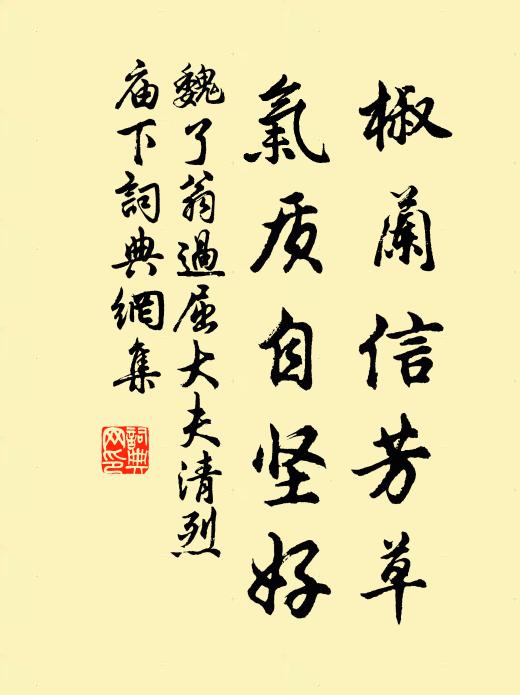 椒蘭信芳草
氣质自坚好
魏了翁過屈大夫清烈
庙下詞典網集
詞典
网印